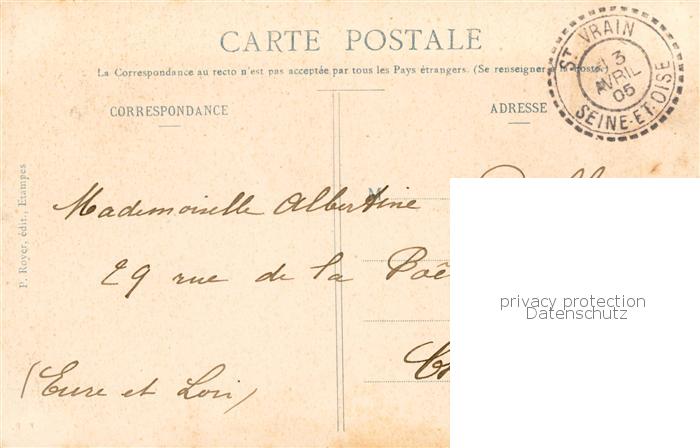 CARTE POSTALE
La Correspondance au recto n'est pas acceptée par tous les Pays étrangers. (Se renseigner à la Poste)
CORRESPONDANCE
ADRESSE
ST VRAIN
3
AVRIL
05
SEINE-ET-OISE
P. Royer, édit., Etampes
M
Mademoiselle Albertine
29 rue de la
(Eure et Loir)
privacy protection
Datenschutz